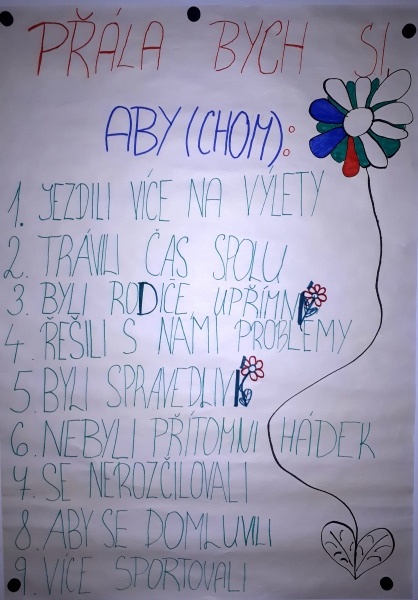 PŘÁLA BYCH SI,
ABY(CHOM):
1. JEZDILI VÍCE NA VÝLETY
2. TRÁVILI ČAS SPOLU
3. BYLI RODIČE UPŘÍMNÍ
4. ŘEŠILI S NÁMI PROBLÉMY
5. BYLI SPRAVEDLIVÍ
6. NEBYLI PŘÍTOMNI HÁDEK
7. SE NEROZČILOVALI
8. ABY SE DOMLUVILI
9. VÍCE SPORTOVALI